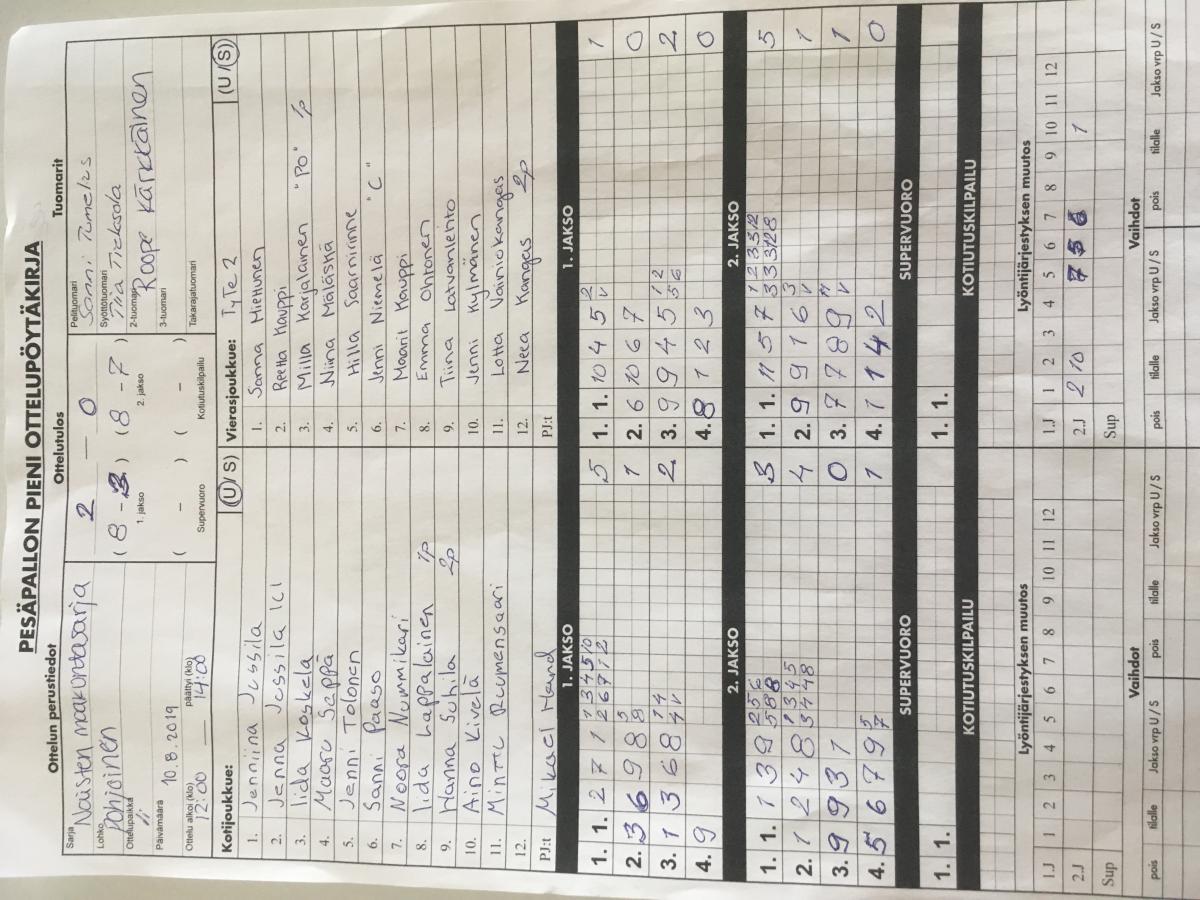 PESÄPALLON PIENI OTTELUPÖYTÄKIRJA
Ottelun perustiedot
Sarja Naisten maakuntasarja
Lohko Pohjoinen
Ottelupaikka
Päivämäärä 10.8.2019
Ottelu alkoi (klo) 12:00 — päättyi (klo) 14:00
Ottelutulos
2 — 0
( 8 - 3 ) ( 8 - 7 )
1. jakso 2. jakso
( - ) ( - )
Supervuoro Kotiutuskilpailu
Tuomarit
Pelituomari Sanni Tumelus
Syöttötuomari Tiia Tiekasola
2-tuomari Roope Kärkkäinen
3-tuomari
Takarajatuomari
Kotijoukkue: (U / S)
1. Jenniina Jussila
2. Jenna Jussila
3. Iida Koskela
4. Maaru Seppä
5. Jenni Tolonen
6. Sanni Paaso
7. Noora Nummikari
8. Iida Lappalainen 1p
9. Hanna Suhila 2p
10. Aino Kivelä
11. Minttu Raumensaari
12.
PJ:t Mikael Mand
Vierasjoukkue: TyTe 2 (U / S)
1. Sanna Miettunen
2. Reetta Kauppi
3. Milla Karjalainen "PO" 1p
4. Niina Mälaskä
5. Hilla Saarnirinne
6. Jenni Niemelä "C"
7. Maarit Kauppi
8. Emma Ohtonen
9. Tiina Latvanlehto
10. Jenni Kylmänen
11. Lotta Vainiokangas
12. Neea Kangas 2p
PJ:t
1. JAKSO
1. 1. 2 7 1 1 3 4 5 10 5
2 6 7 12
2. 3 6 9 8 5 1
8
3. 1 3 6 8 1 4 2
4 v
4. 9
2. JAKSO
1. 1. 1 3 9 2 5 6 3
5 8 8
2. 1 2 4 8 1 3 4 5 4
3 4 4 8
3. 9 9 3 1 0
4. 5 6 7 9 5 1
7
SUPERVUORO
1. 1.
KOTIUTUSKILPAILU
1. JAKSO
1. 1. 10 4 5 2 1
v
2. 6 10 6 7 0
3. 9 9 4 5 1 2 2
5 6
4. 8 1 2 3 0
2. JAKSO
1. 1. 11 5 7 1 2 3 3 12 5
3 3 3 12 8
2. 9 9 1 6 3 1
v
3. 7 7 8 9 1
v
4. 1 1 4 2 0
SUPERVUORO
1. 1.
KOTIUTUSKILPAILU
Lyöntijärjestyksen muutos
1.J 1 2 3 4 5 6 7 8 9 10 11 12
2.J
Sup
Vaihdot
pois tilalle Jakso vrp U / S pois tilalle Jakso vrp U / S
Lyöntijärjestyksen muutos
1.J 1 2 3 4 5 6 7 8 9 10 11 12
2.J 2 10 7 5 6 1
Sup
Vaihdot
pois tilalle Jakso vrp U / S pois tilalle Jakso vrp U / S